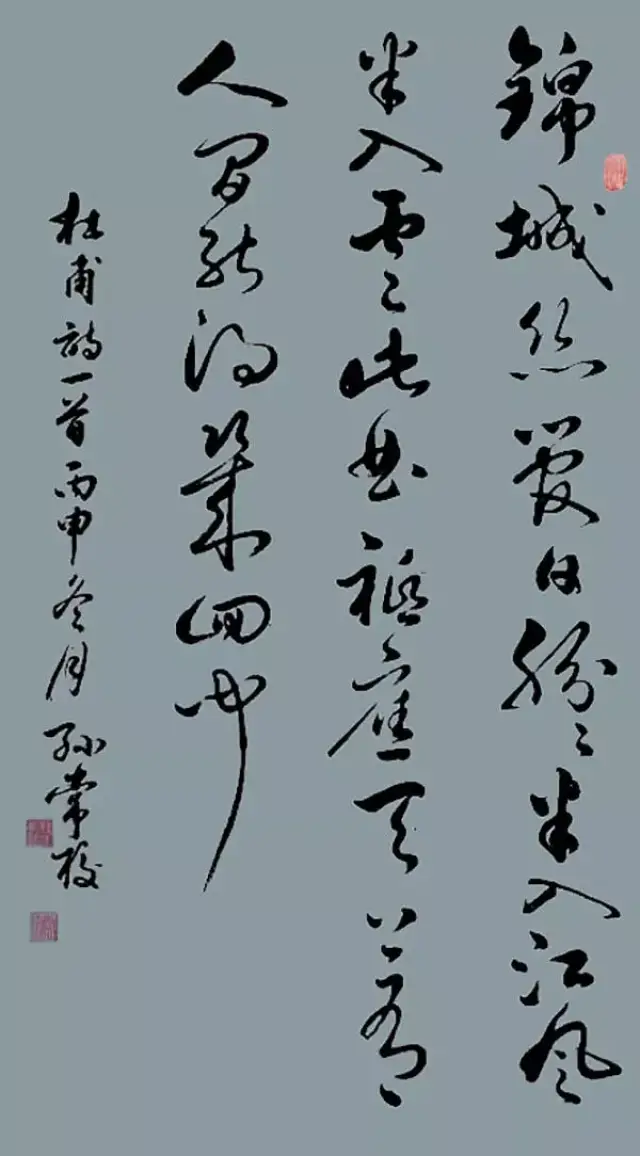 錦城丝管日紛紛半入江风
半入雲此曲祗應天上有
人間能得幾回聞
杜甫詩一首丙申冬月孙常